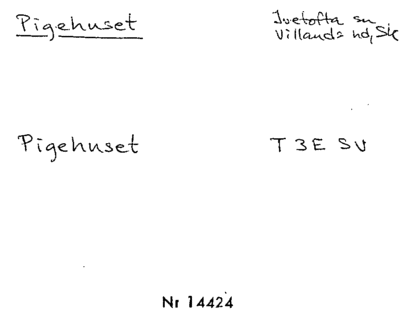 Pigehuset
Ivetofta sn
Villands hd, Sk
Pigehuset
T 3E SV
Nr 14424